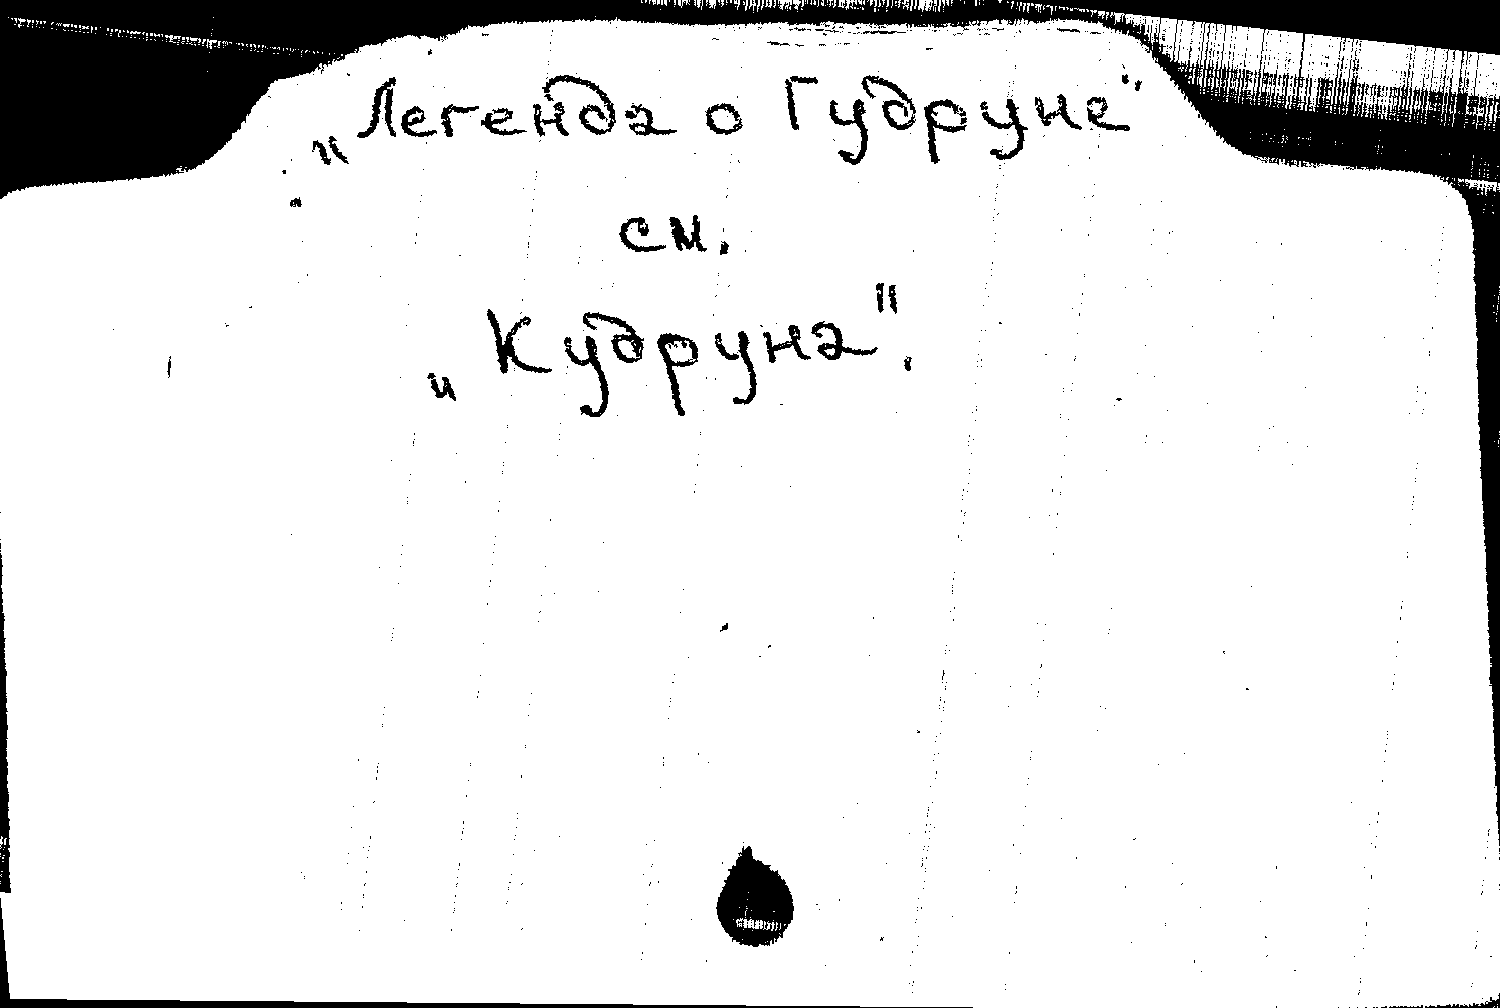 „Легенда о Гудруне"
см.
„Кудруна".